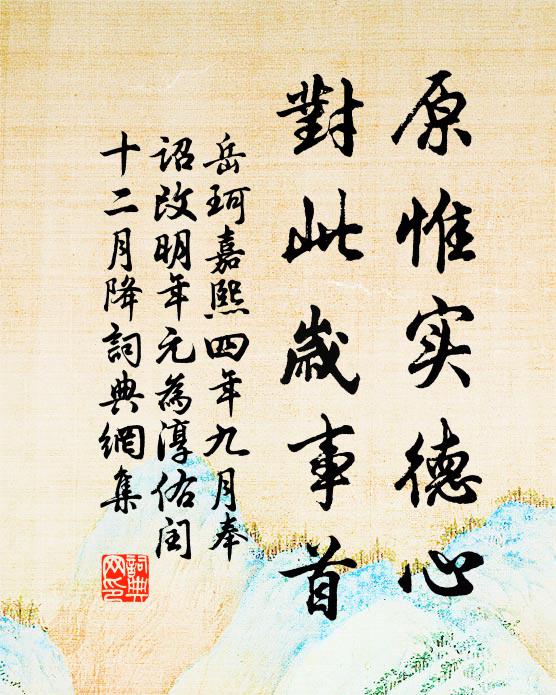 原惟实德心
對此歲事首
岳珂嘉熙四年九月奉
诏改明年元為淳佑闰
十二月降詞典網集
詞典
网印